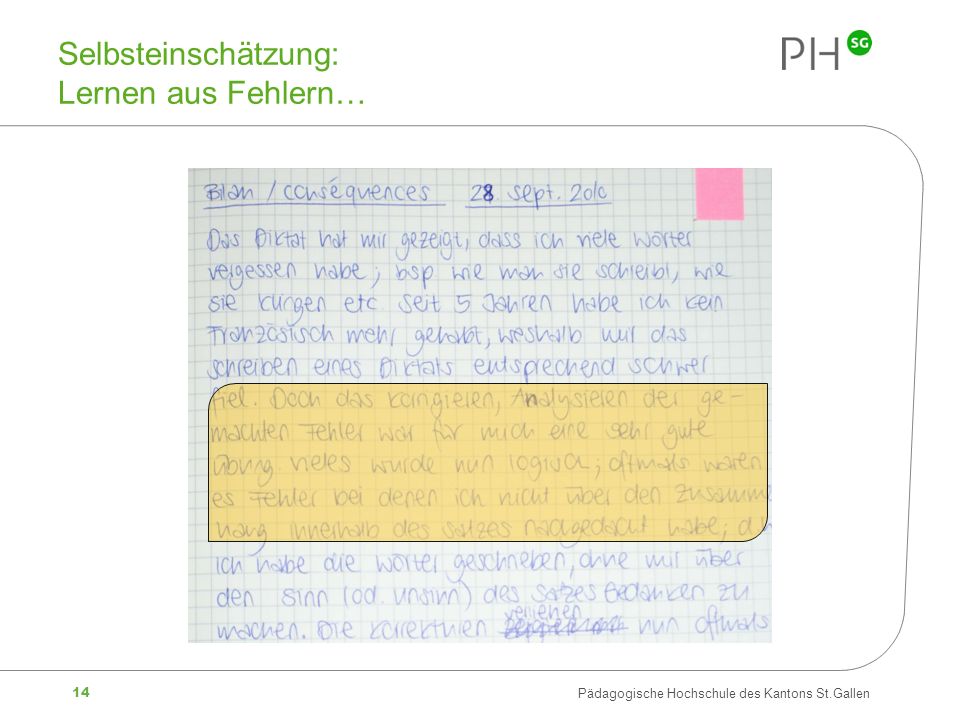 Selbsteinschätzung:
Lernen aus Fehlern…
PH SG
Bilan / conséquences 28 sept. 2010
Das Diktat hat mir gezeigt, dass ich viele Wörter
vergessen habe; bsp wie man sie schreibt, wie
sie kürzen etc. Seit 5 Jahren habe ich kein
Französisch mehr gehabt, weshalb mir das
schreiben eines Diktats entsprechend schwer
fiel. Doch das korrigieren, Analysieren der ge-
machten Fehler war für mich eine sehr gute
Übung. Vieles wurde nun logisch; oftmals waren
es Fehler bei denen ich nicht über den Zusamme
hang innerhalb des Satzes nachgedacht habe; d.h
ich habe die Wörter geschrieben, ohne mir über
den Sinn (od. Unsinn) des Satzes Gedanken zu
machen. Die Korrekturen verliehen nun oftmals
14
Pädagogische Hochschule des Kantons St.Gallen